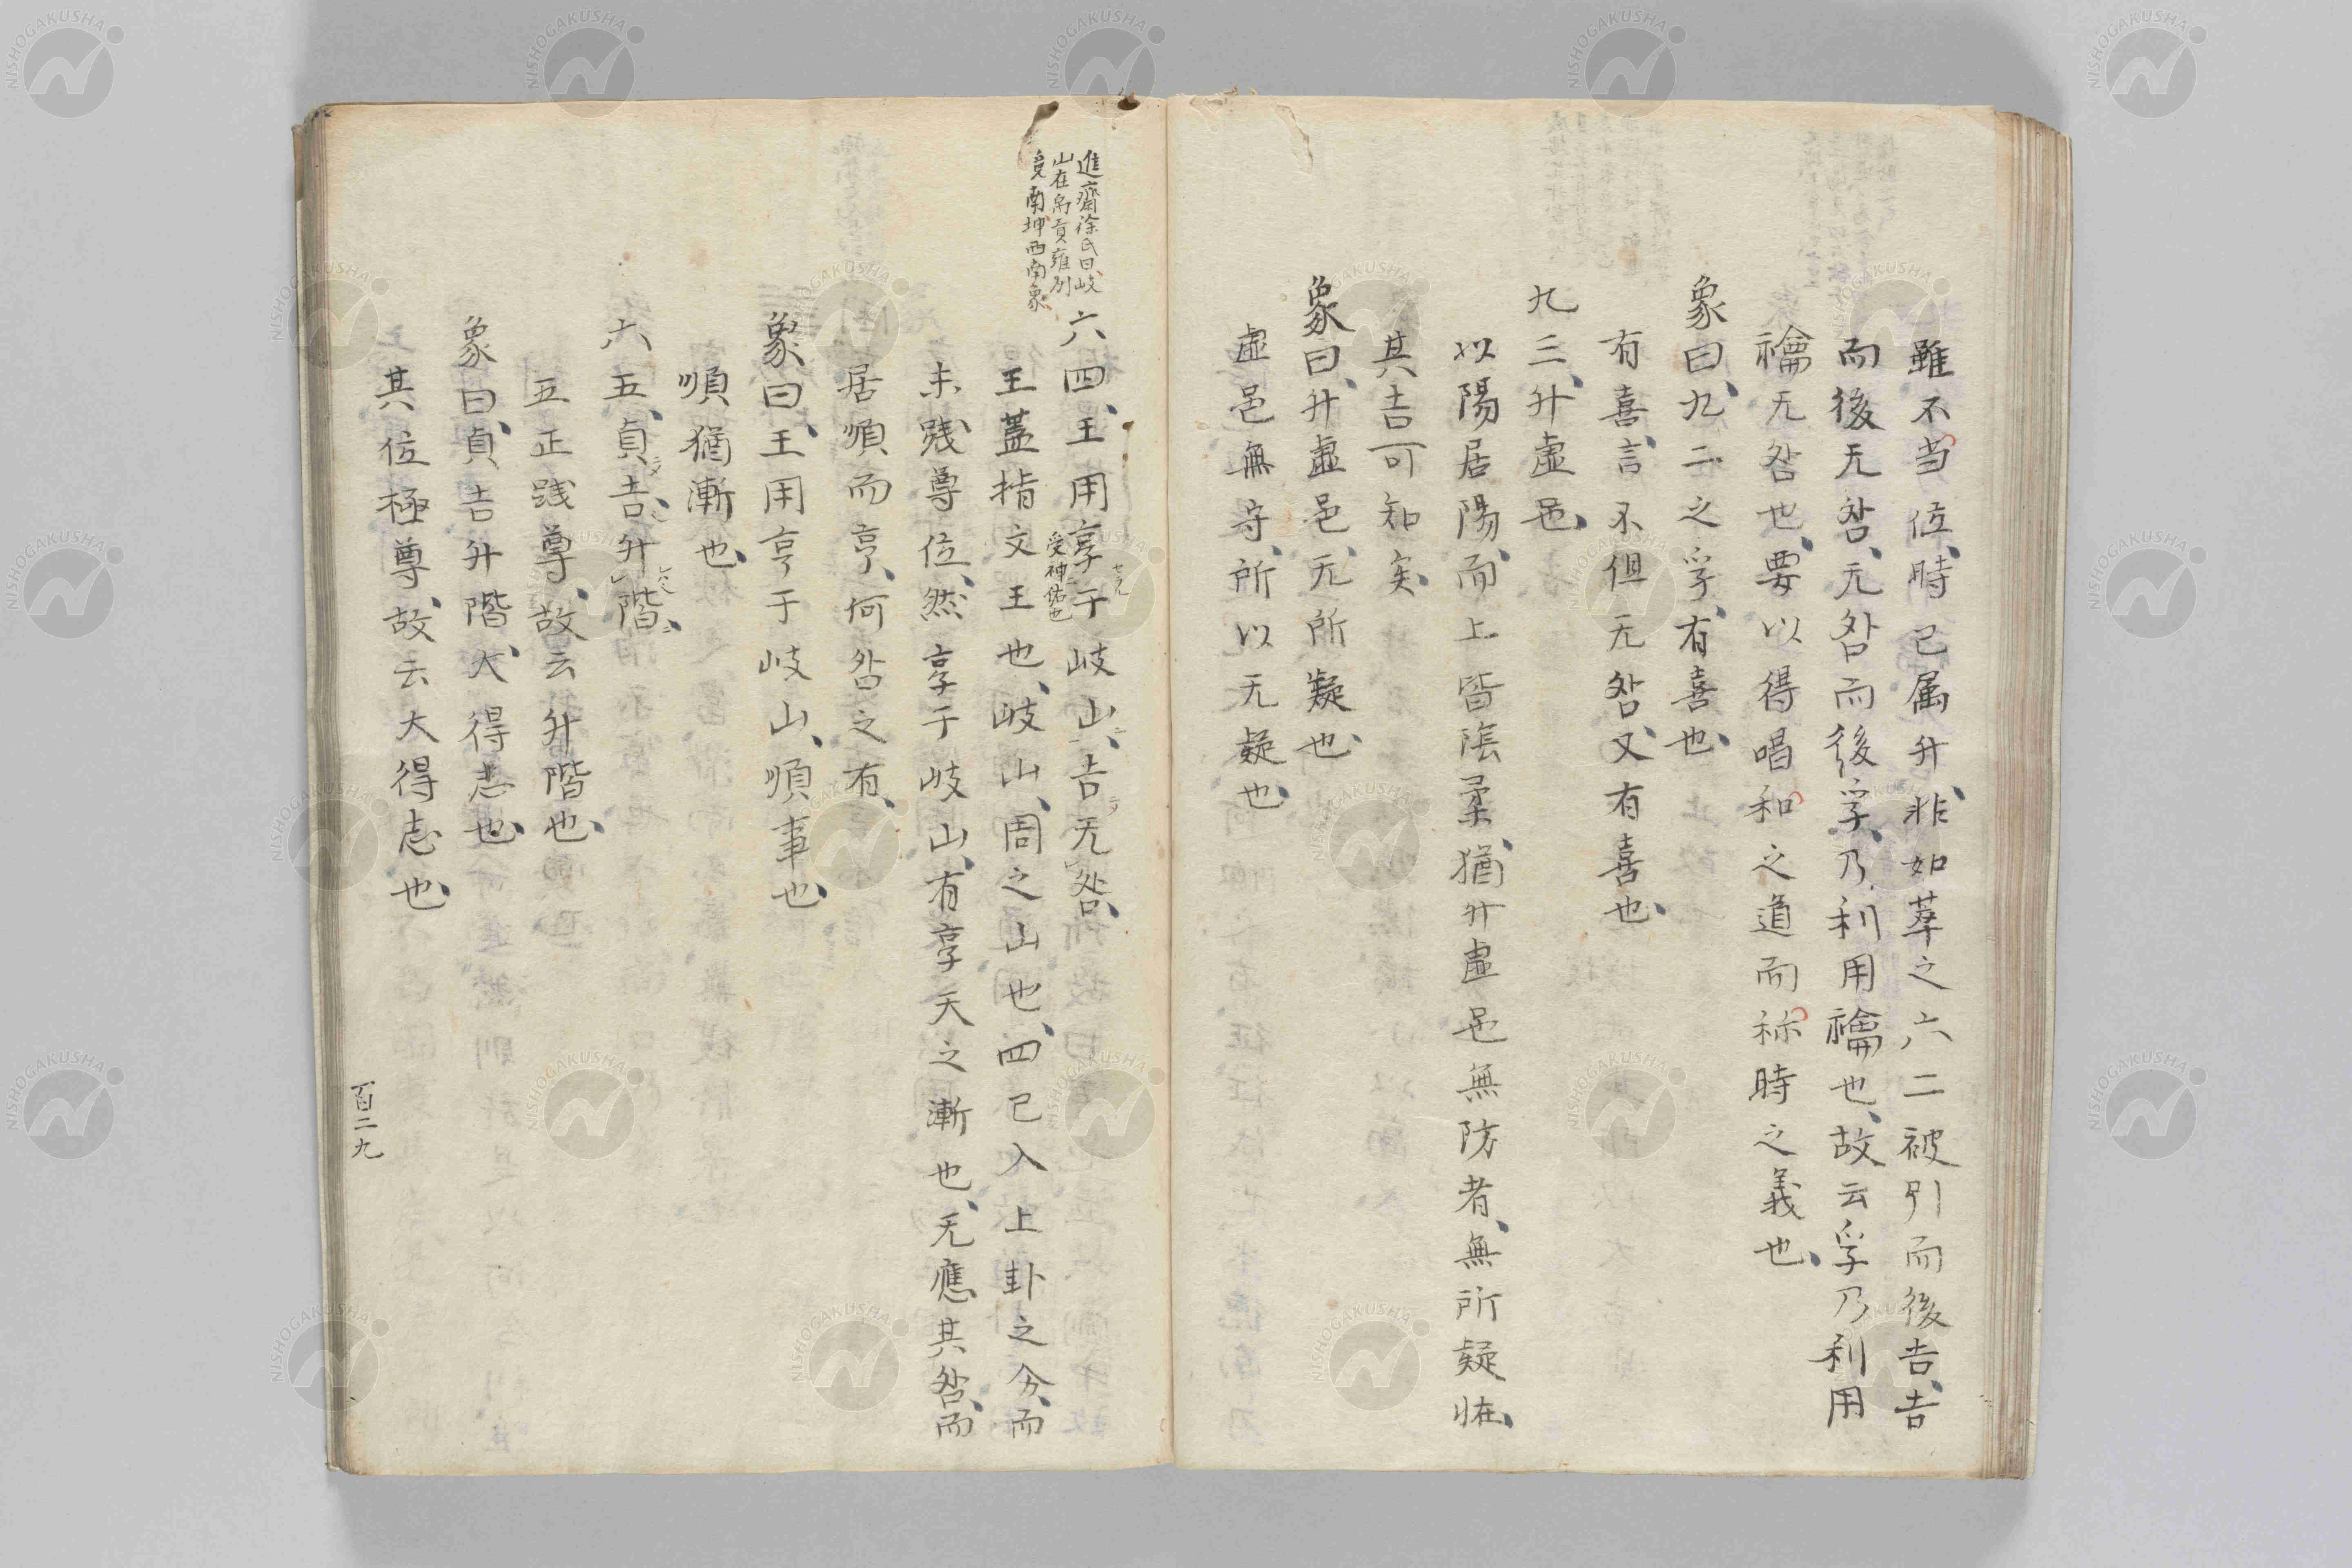 雖不当位、時已属升、非如萃之六二被引而後吉、吉
而後无咎、无咎而後孚、乃利用禴也、故云孚乃利用
禴无咎也、要以得唱和之道而称時之義也、
象曰、九二之孚、有喜也、
有喜、言不但无咎、又有喜也、
九三、升虚邑、
以陽居陽、而上皆陰柔、猶升虚邑無防者、無所疑恠、
其吉可知矣、
象曰、升虚邑、无所疑也、
虚邑無守、所以无疑也、
進齋徐氏曰岐
山在禹貢雍州
兌南坤西南象
六四、王用享于岐山、吉无咎、
受神佑也
王蓋指文王也、岐山、周之山也、四已入上卦之分、而
未践尊位、然享于岐山、有享天之漸也、无應其咎、而
居順而亨、何咎之有、
象曰、王用亨于岐山、順事也、
順猶漸也、
六五、貞吉、升階、
五正践尊、故云升階也、
象曰、貞吉升階、大得志也、
其位極尊、故云大得志也、
百二九